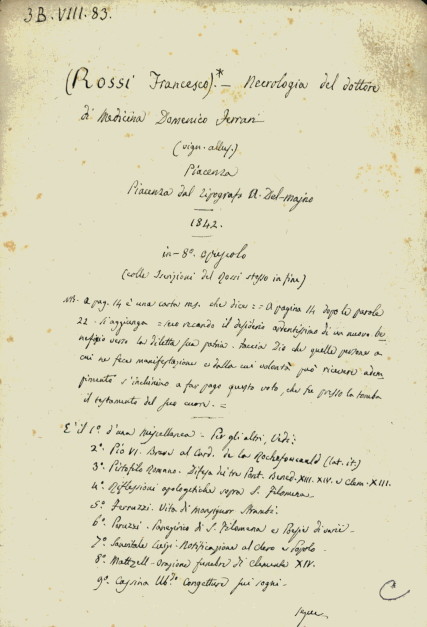 3B.VIII.83.
(Rossi Francesco).* — Necrologia del dottore
di Medicina Domenico Ferrari
(vign. alleg.)
Piacenza
Piacenza dal Tipografo A. Del-majno
1842.
in-8° opuscolo
(colle Iscrizioni del Rossi stesso in fine)
NB. a pag. 14 è una carta ms. che dice: = A pagina 14 dopo le parole
22 - S'aggiunga = seco recando il desiderio ardentissimo di un nuovo be-
nefizio verso la diletta sua patria. Faccia Dio che quelle persone a
cui ne fece manifestazione e dalla cui volontà può ricevere adem-
pimento s'inchinino a far pago questo voto, che fu presso la tomba
il testamento del suo cuore. =
E' il 1° d'una Miscellanea - Per gli altri, Vedi:
2° Pio VI. Breve al Card. de la Rochefoucauld (lat. it.)
3° Pistofilo Romano - Difesa di tre Pont. Bened. XIII. XIV. e Clem. XIII.
4° Riflessioni apologetiche sopra S. Filomena
5° Ferruzzi. Vita di Monsignor Strambi.
6° Peruzzi - Panegirico di S. Filomena e Poesie di varii -
7° Sanvitale Luigi - Notificazione al clero e Popolo -
8° Mattzell - Orazione funebre di Clemente XIV.
9° Cassina Ub.do Congetture sui sogni -
C